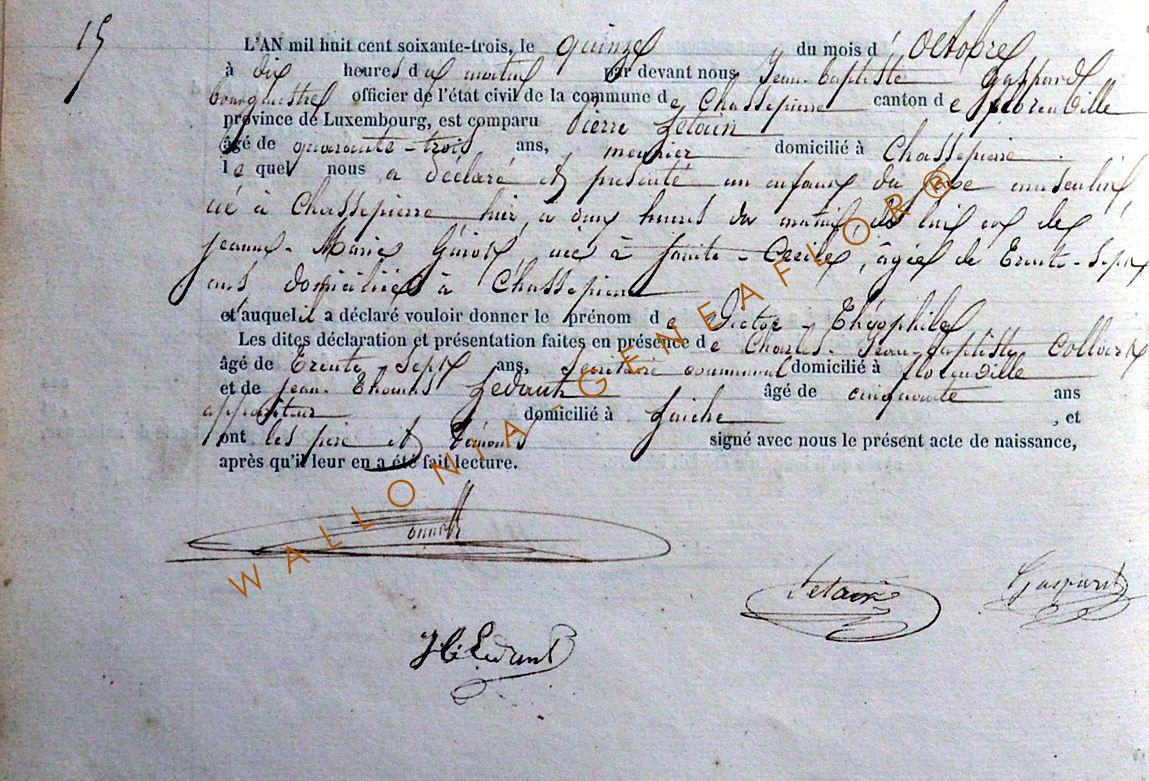 15
L'AN mil huit cent soixante-trois, le quinze du mois d'octobre
à dix heures du matin par devant nous Jean-Baptiste Gaspard
bourgmestre officier de l'état civil de la commune de Chassepierre canton de florenville
province de Luxembourg, est comparu Pierre Letain
âgé de quarante-trois ans, meunier domicilié à Chassepierre
le quel nous a déclaré et présenté un enfant du sexe masculin,
né à Chassepierre hier, à deux heures du matin, de lui et de
Jeanne-Marie née à Sainte-Cecile, âgée de trente-sept
ans domiciliée à Chassepierre
et auquel il a déclaré vouloir donner le prénom de Victor-Théophile
Les dites déclaration et présentation faites en présence de Charles-Jean-Baptiste Collart
âgé de trente sept ans, secrétaire communal domicilié à florenville
et de Jean-Thomas Ledant âgé de cinquante ans
appariteur domicilié à Laiche, et
ont les père et témoins signé avec nous le présent acte de naissance,
après qu'il leur en a été fait lecture.
Letain
Gaspard
Ledant
WALLONIA-GENEAFLOR®